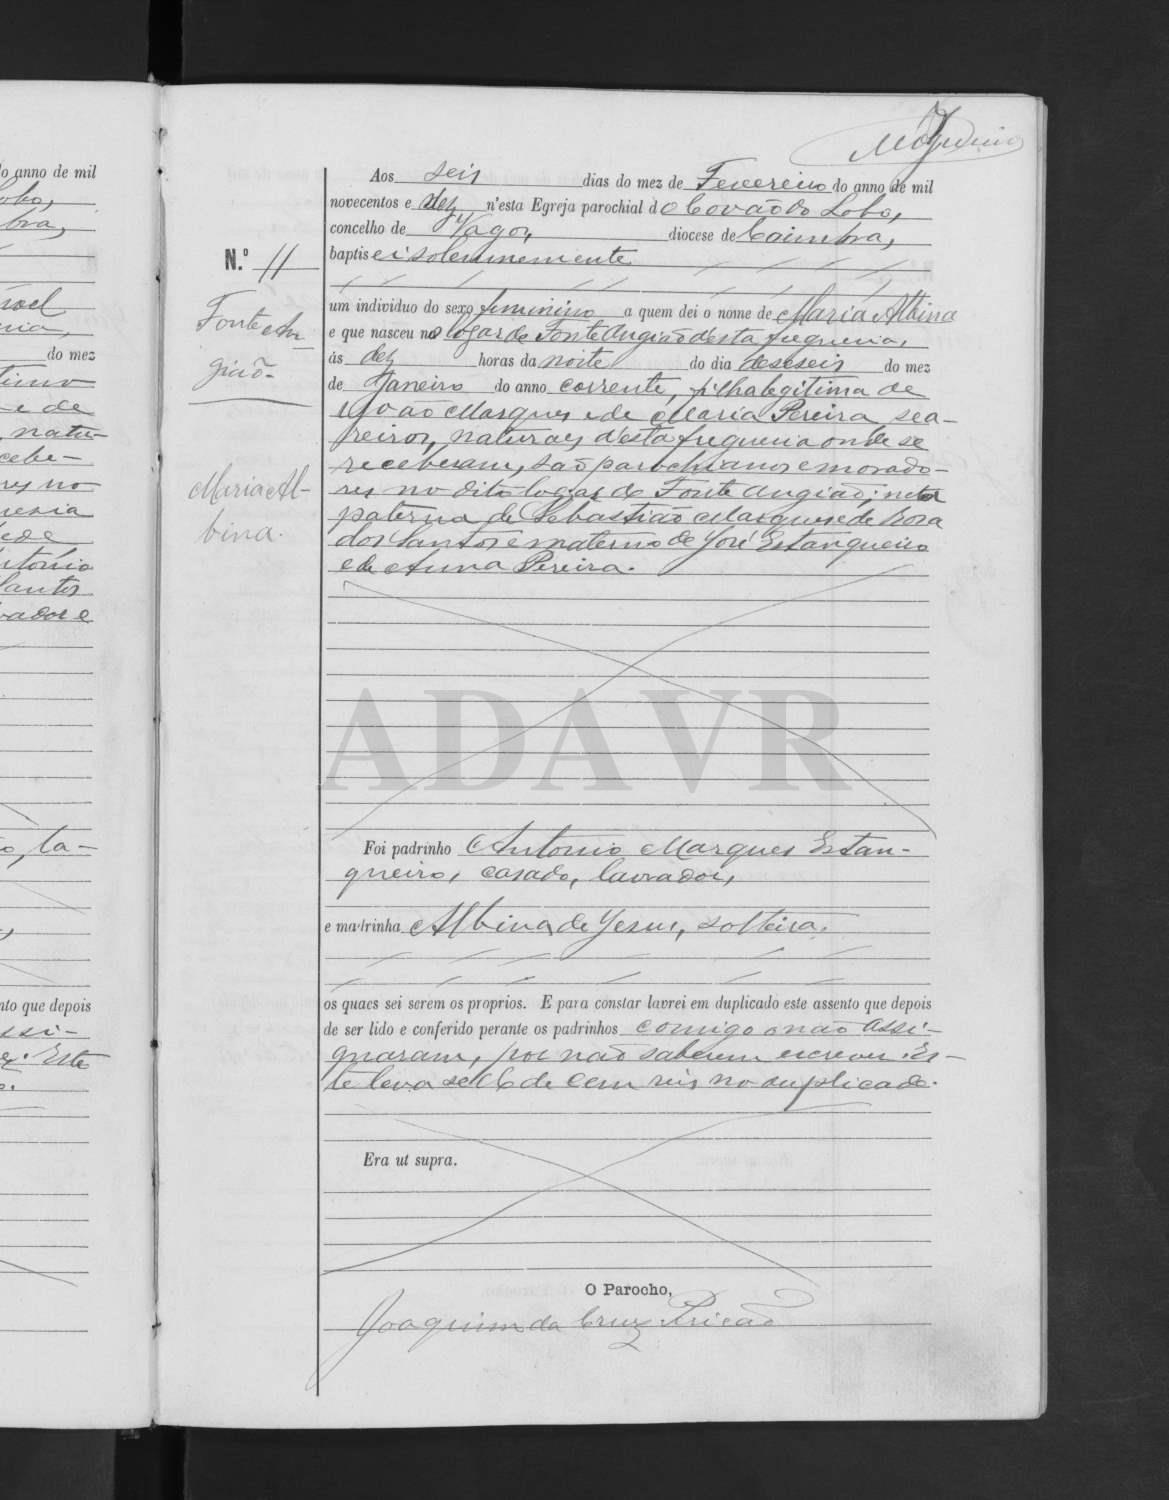 do anno de mil
obo,
bra,
do mez
e de
natu-
cebe-
res no
tonio
Santos
vador e
la-
nto que depois
assi-
Este
7
Aos seis dias do mez de Fevereiro do anno de mil
novecentos e dez n'esta Egreja parochial do Covão do Lobo,
concelho de Vagos, diocese de Coimbra,
baptisei solemnemente
N.º 11
Fonte An-
gião-
Maria Al-
bina.
um individuo do sexo feminino a quem dei o nome de Maria Albina
e que nasceu no logar de Fonte Angião d'esta freguesia,
ás dez horas da noite do dia deseseis do mez
de Janeiro do anno corrente, filha legitima de
João Marques e de Maria Pereira sea-
reiros, naturaes d'esta freguesia onde se
receberam, são parochianos e morado-
res no dito logar de Fonte Angião; neta
paterna de Sebastião Marques e de Rosa
dos Santos e materno de José Estanqueiro
e de Anna Pereira.
ADAVR
Foi padrinho Antonio Marques Estan-
queiro, casado, lavrador,
e madrinha Albina de Jesus, solteira.
os quaes sei serem os proprios. E para constar lavrei em duplicado este assento que depois
de ser lido e conferido perante os padrinhos comigo o não assi-
gnaram, por não saberem escrever. Es-
te leva sello de cem reis no duplicado.
Era ut supra.
O Parocho,
Joaquim da Cruz